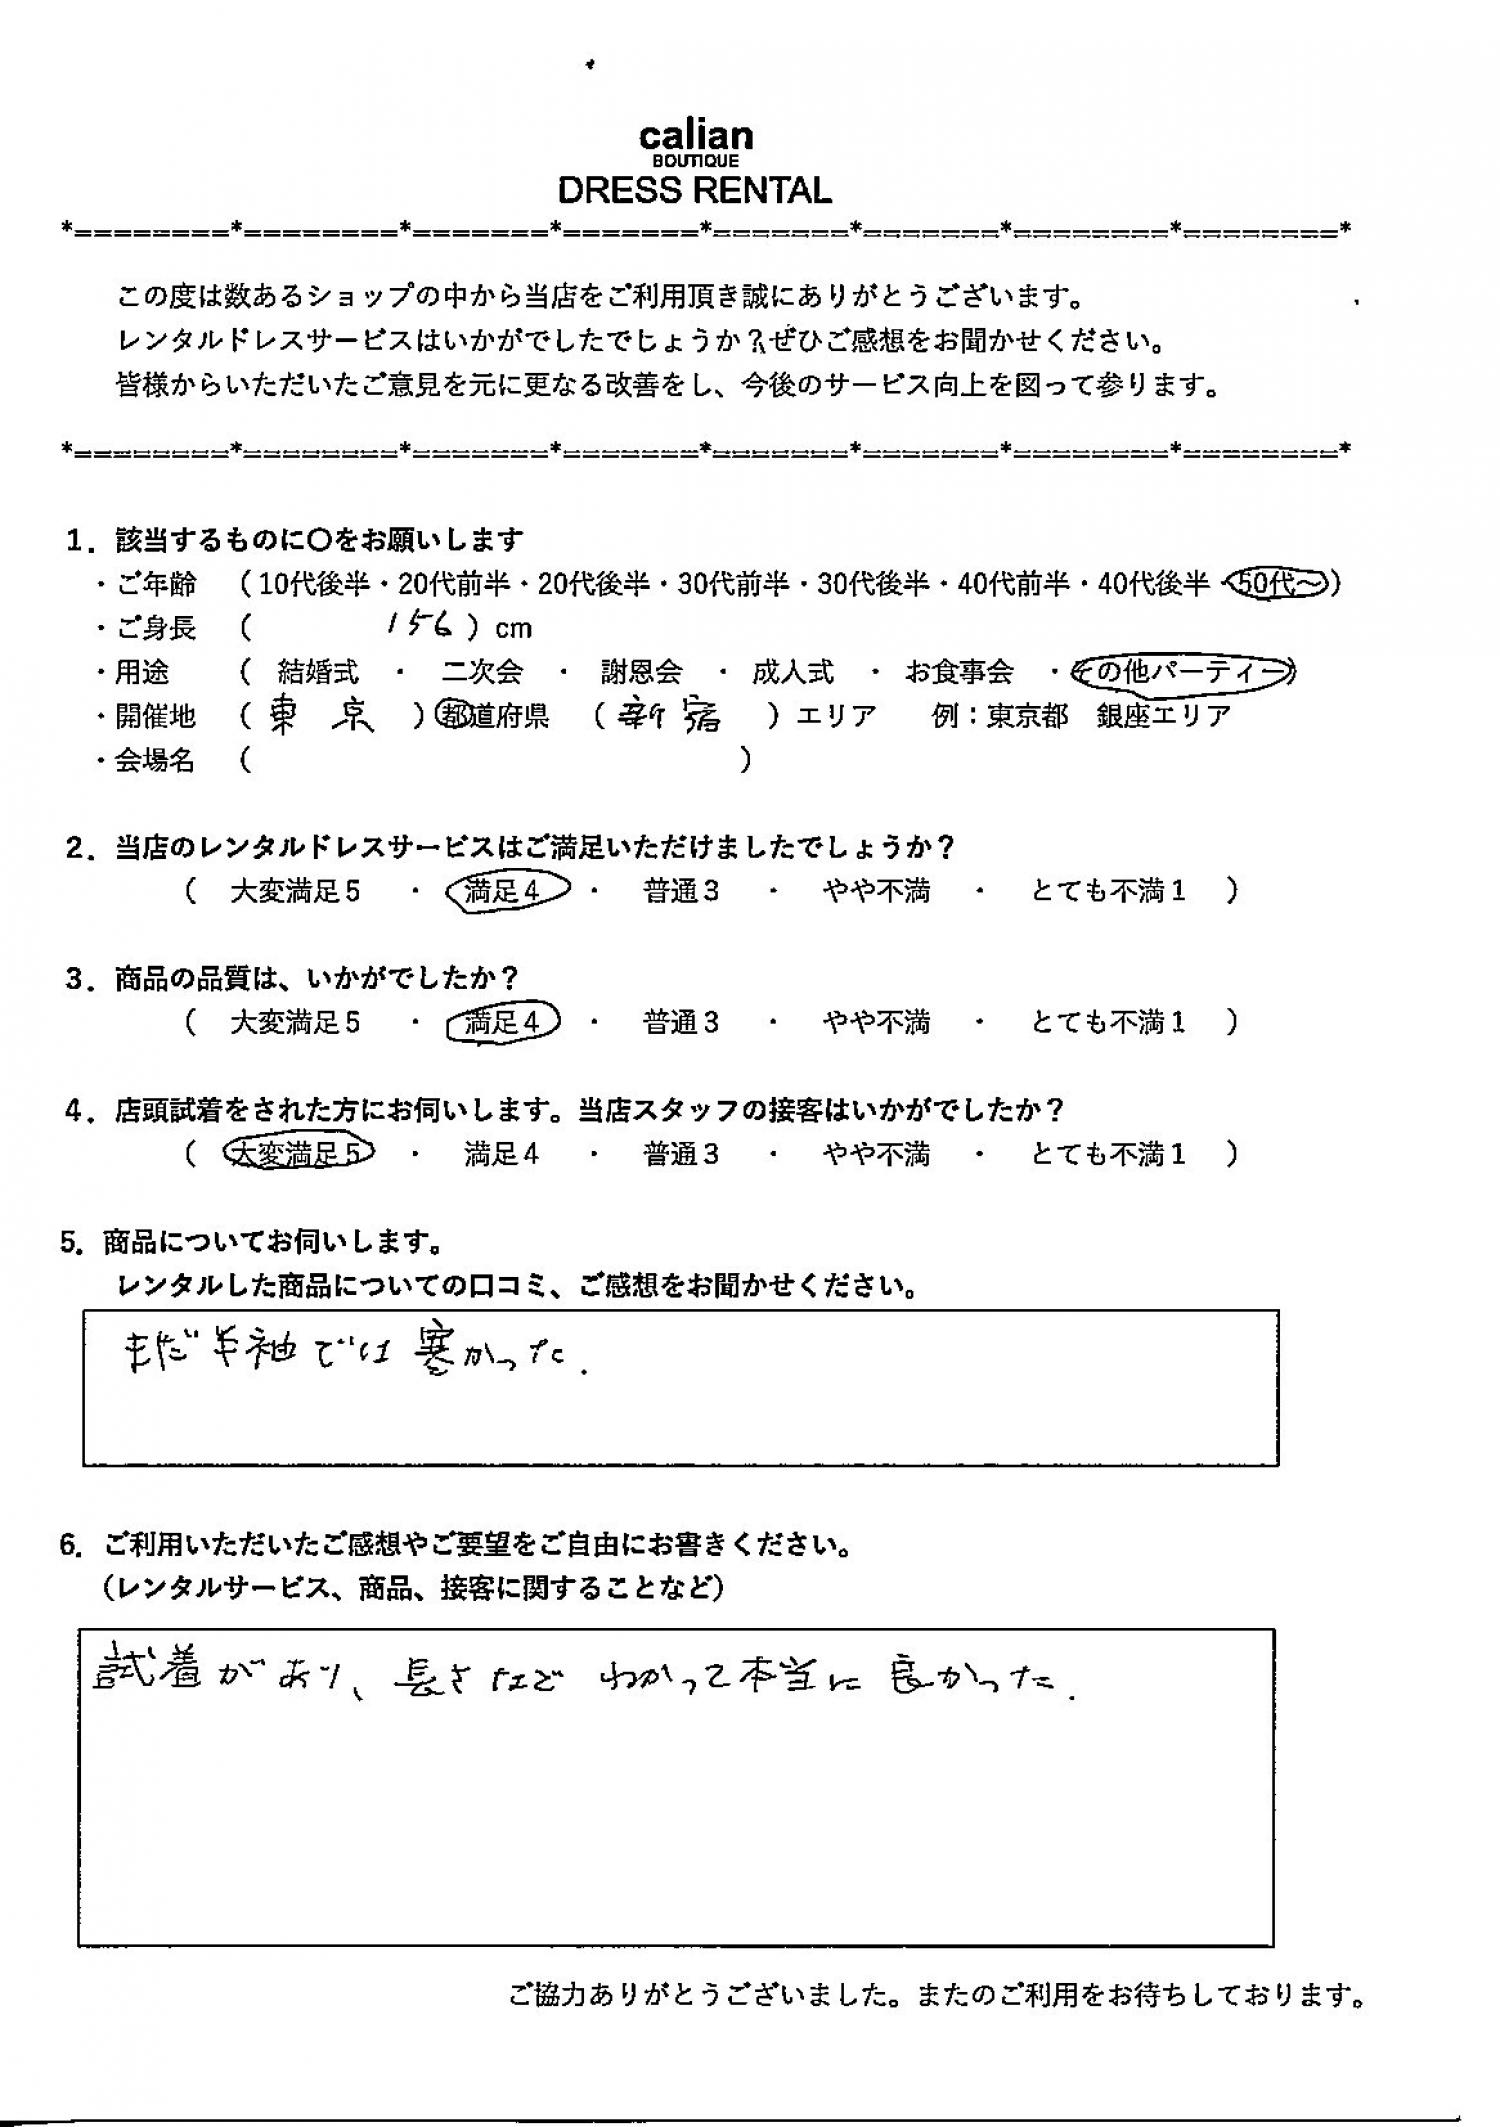 calian
BOUTIQUE
DRESS RENTAL
*========*========*=======*=======*=======*=======*========*========*
この度は数あるショップの中から当店をご利用頂き誠にありがとうございます。
レンタルドレスサービスはいかがでしたでしょうか？ぜひご感想をお聞かせください。
皆様からいただいたご意見を元に更なる改善をし、今後のサービス向上を図って参ります。
*========*========*=======*=======*=======*=======*========*========*
1．該当するものに〇をお願いします
・ご年齢 （10代後半・20代前半・20代後半・30代前半・30代後半・40代前半・40代後半・50代～）
・ご身長 （ 156 ）cm
・用途 （ 結婚式 ・ 二次会 ・ 謝恩会 ・ 成人式 ・ お食事会 ・その他パーティー）
・開催地 （ 東京 ）都道府県 （ 新宿 ）エリア 例：東京都 銀座エリア
・会場名 （ ）
2．当店のレンタルドレスサービスはご満足いただけましたでしょうか？
（ 大変満足５ ・ 満足４ ・ 普通３ ・ やや不満 ・ とても不満１ ）
3．商品の品質は、いかがでしたか？
（ 大変満足５ ・ 満足４ ・ 普通３ ・ やや不満 ・ とても不満１ ）
4．店頭試着をされた方にお伺いします。当店スタッフの接客はいかがでしたか？
（ 大変満足５ ・ 満足４ ・ 普通３ ・ やや不満 ・ とても不満１ ）
5．商品についてお伺いします。
レンタルした商品についての口コミ、ご感想をお聞かせください。
まだ半袖では寒かった.
6．ご利用いただいたご感想やご要望をご自由にお書きください。
（レンタルサービス、商品、接客に関することなど）
試着があり、長さなどわかって本当に良かった.
ご協力ありがとうございました。またのご利用をお待ちしております。